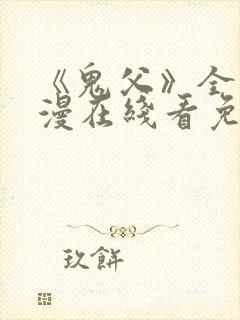 《鬼父》全
漫在线看免
玖餅